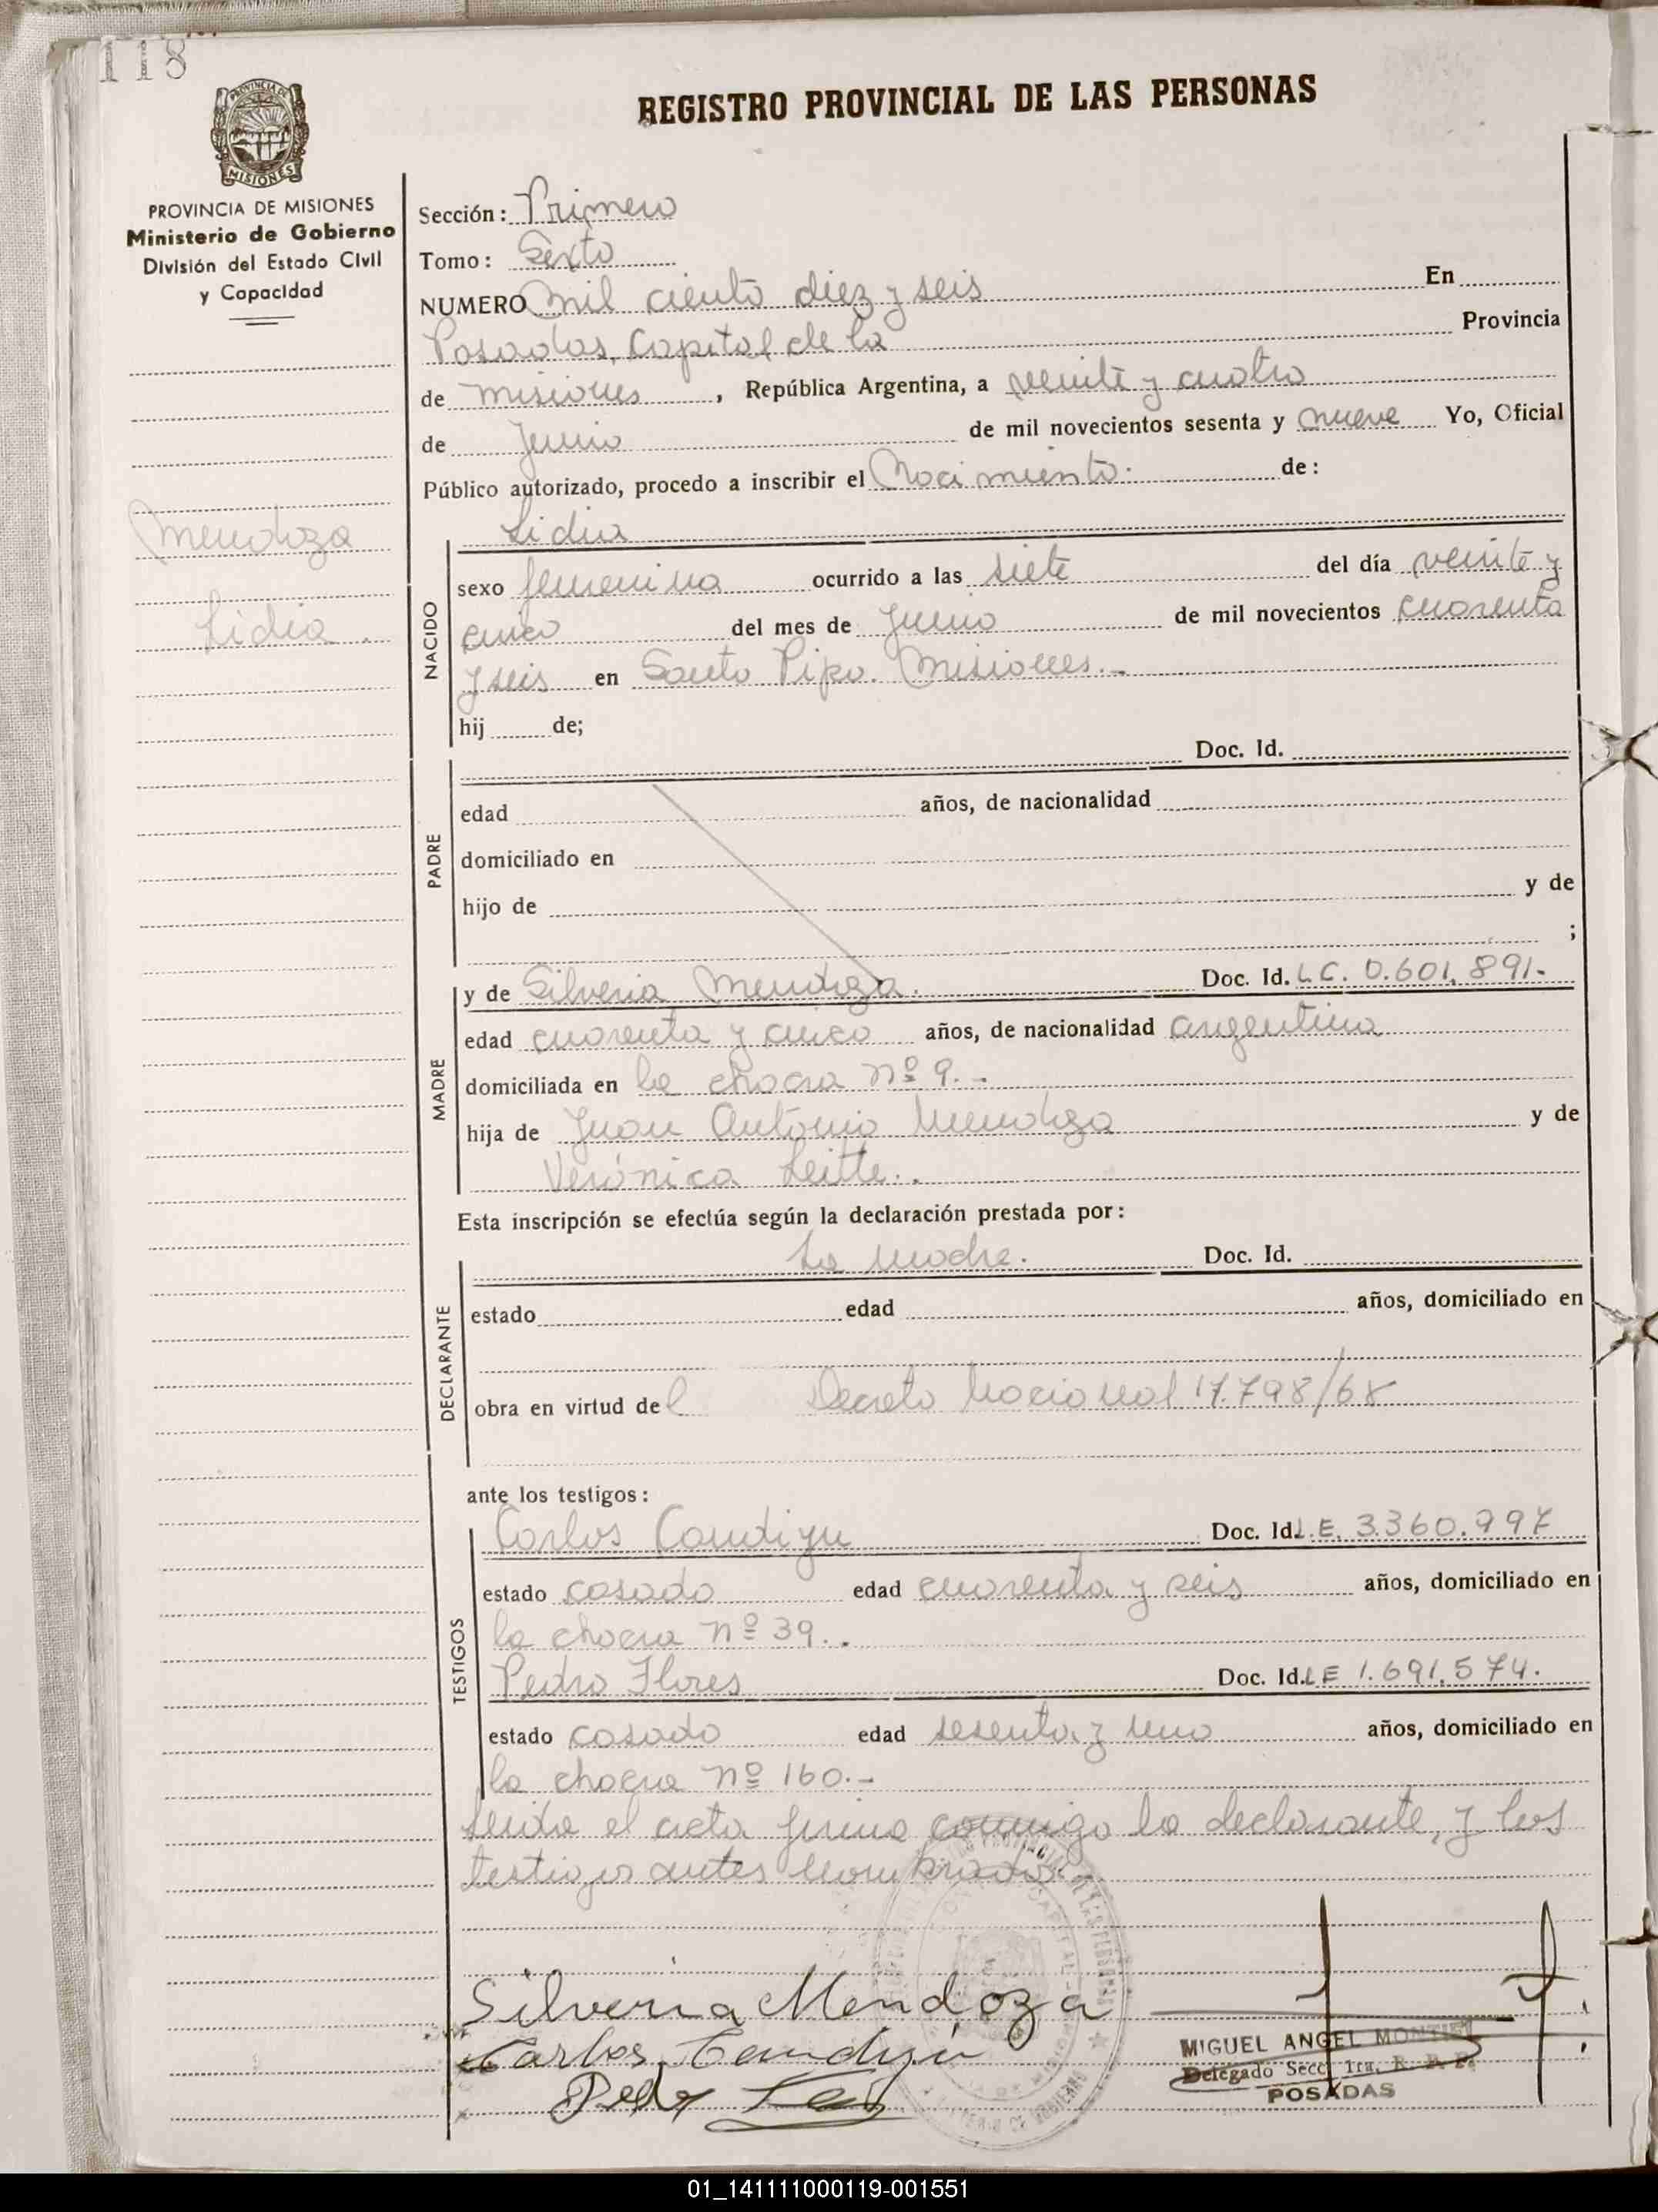 118
REGISTRO PROVINCIAL DE LAS PERSONAS
PROVINCIA DE
MISIONES
PROVINCIA DE MISIONES
Ministerio de Gobierno
División del Estado Civil
y Capacidad
Mendoza
Lidia.
Sección: Primero
Tomo: Sexto
NUMERO Mil ciento diez y seis En
Posadas, Capital de la Provincia
de Misiones, República Argentina, a veinte y cuatro
de Junio de mil novecientos sesenta y nueve Yo, Oficial
Público autorizado, procedo a inscribir el Nacimiento. de:
Lidia
NACIDO
sexo femenina ocurrido a las siete del día veinte y
cinco del mes de Junio de mil novecientos cuarenta
y seis en Santo Pipo. Misiones.-
hij de;
Doc. Id.
PADRE
edad años, de nacionalidad
domiciliado en
hijo de y de
;
y de Silveria Mendoza. Doc. Id. L C. 0.601.891.-
MADRE
edad cuarenta y cinco años, de nacionalidad argentina
domiciliada en la chacra Nº 9.-
hija de Juan Antonio Mendoza y de
Verónica Leitte.
Esta inscripción se efectúa según la declaración prestada por:
La madre. Doc. Id.
DECLARANTE
estado edad años, domiciliado en
obra en virtud del Decreto Nacional 17.798/68
ante los testigos:
TESTIGOS
Carlos Candiyu Doc. Id. L.E. 3.360.997
estado casado edad cuarenta y seis años, domiciliado en
la chacra Nº 39..
Pedro Flores Doc. Id. L E 1.691.574.
estado casado edad sesenta y uno años, domiciliado en
la chacra Nº 160.-
Leida el acta firma conmigo la declarante, y los
testigos antes nombrados.
Silveria Mendoza
Carlos Candiyú
MIGUEL ANGEL MONTIEL
Delegado Secc. 1ra. R. P. P.
POSADAS
01_141111000119-001551